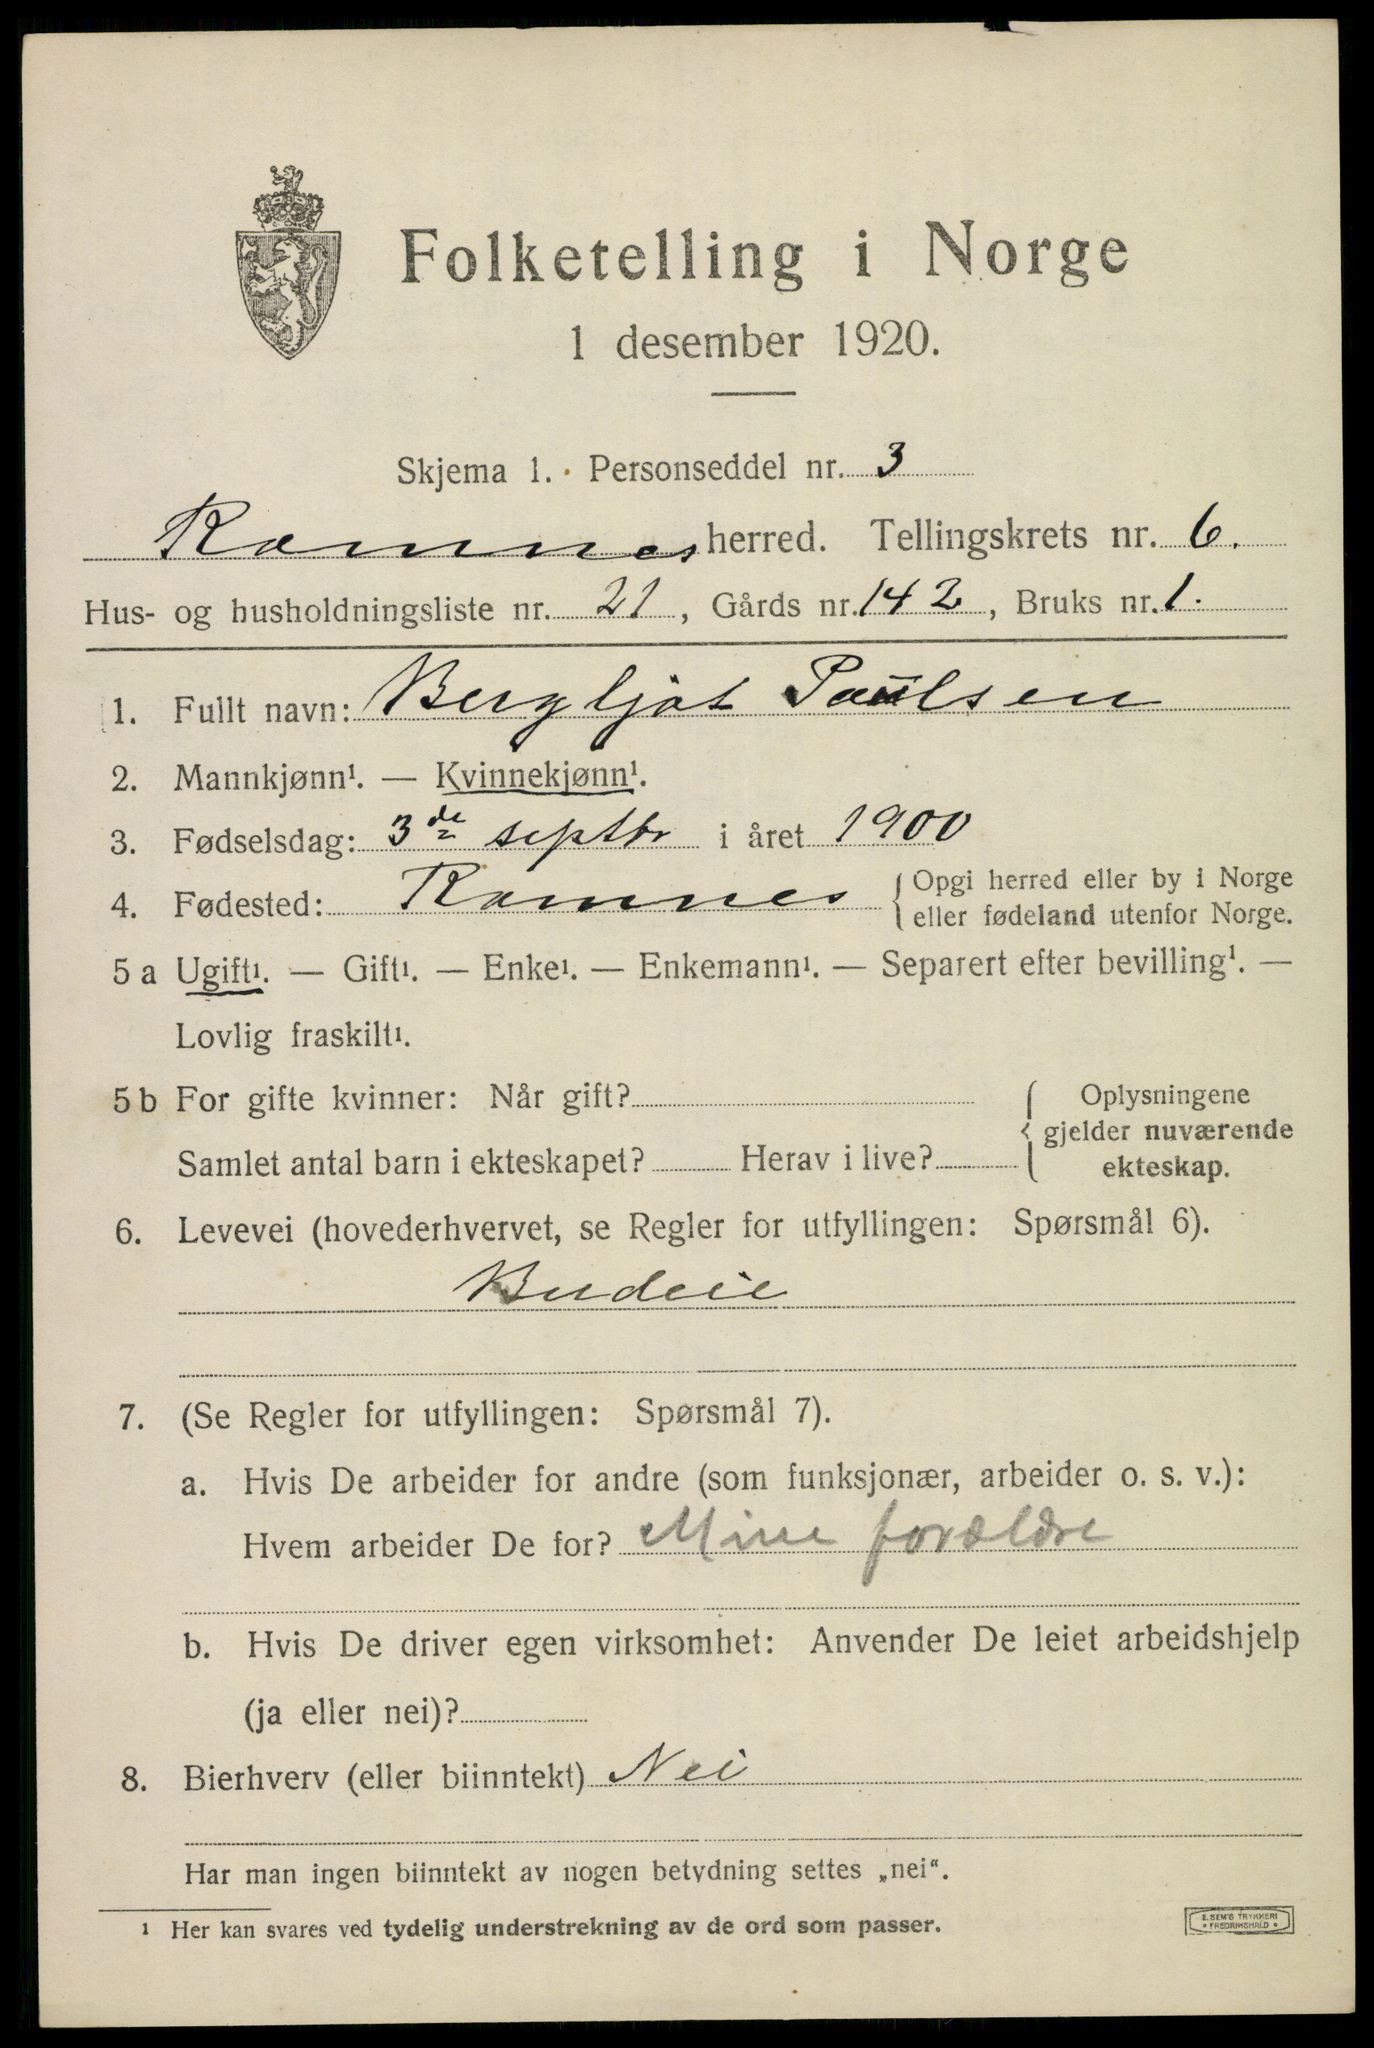 Folketelling i Norge
1 desember 1920.
Skjema 1. Personseddel nr. 3
Ramnes herred. Tellingskrets nr. 6.
Hus- og husholdningsliste nr. 21, Gårds nr. 142, Bruks nr. 1.
1. Fullt navn: Bergljot Paulsen
2. Mannkjønn¹. — Kvinnekjønn¹.
3. Fødselsdag: 3de septbr i året 1900
4. Fødested: Ramnes { Opgi herred eller by i Norge
eller fødeland utenfor Norge.
5 a Ugift¹. — Gift¹. — Enke¹. — Enkemann¹. — Separert efter bevilling¹. —
Lovlig fraskilt¹.
5 b For gifte kvinner: Når gift? { Oplysningene
gjelder nuværende
Samlet antal barn i ekteskapet? Herav i live? ekteskap.
6. Levevei (hovederhvervet, se Regler for utfyllingen: Spørsmål 6).
Budeie
7. (Se Regler for utfyllingen: Spørsmål 7).
a. Hvis De arbeider for andre (som funksjonær, arbeider o. s. v.):
Hvem arbeider De for? Mine forældre
b. Hvis De driver egen virksomhet: Anvender De leiet arbeidshjelp
(ja eller nei)?
8. Bierhverv (eller biinntekt) Nei
Har man ingen biinntekt av nogen betydning settes „nei“.
¹ Her kan svares ved tydelig understrekning av de ord som passer.
E. SEM'S TRYKKERI
• FREDRIKSHALD •